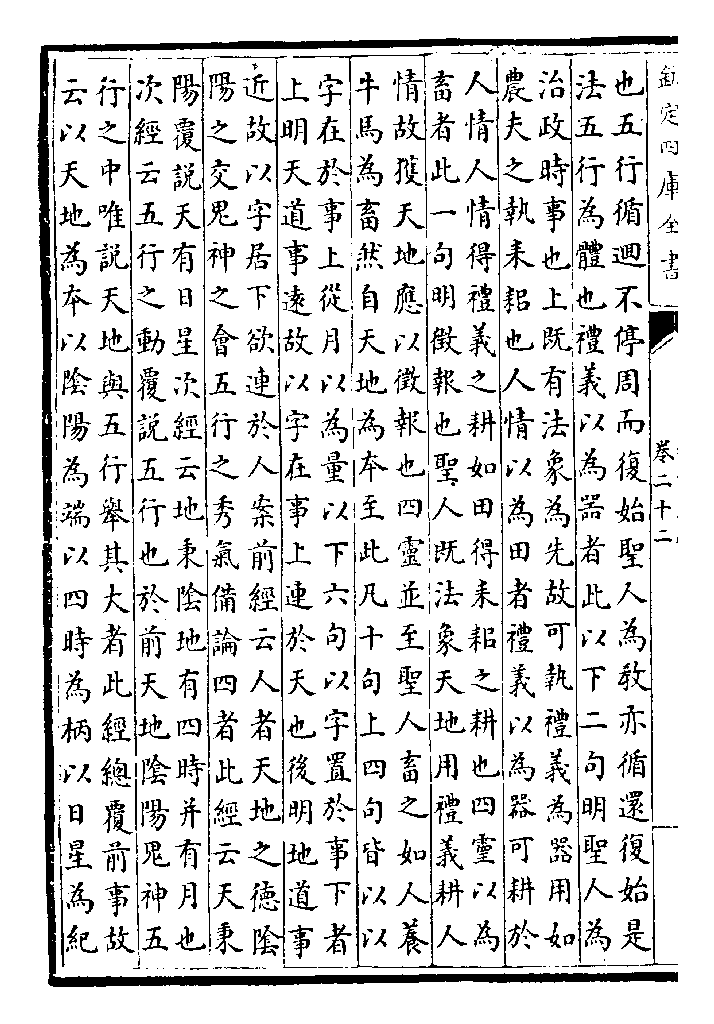 欽定四庫全書
卷二十二
也五行循迴不停周而復始聖人為教亦循還復始是
法五行為體也禮義以為器者此以下二句明聖人為
治政時事也上既有法象為先故可執禮義為器用如
農夫之執耒耜也人情以為田者禮義以為器可耕於
人情人情得禮義之耕如田得耒耜之耕也四靈以為
畜者此一句明徵報也聖人既法象天地用禮義耕人
情故獲天地應以徵報也四靈並至聖人畜之如人養
牛馬為畜然自天地為本至此凡十句上四句皆以以
字在於事上從月以為量以下六句以字置於事下者
上明天道事遠故以字在事上連於天也後明地道事
近故以字居下欲連於人案前經云人者天地之德陰
陽之交鬼神之會五行之秀氣備論四者此經云天秉
陽覆説天有日星次經云地秉陰地有四時并有月也
次經云五行之動覆説五行也於前天地陰陽鬼神五
行之中唯説天地與五行舉其大者此經總覆前事故
云以天地為本以陰陽為端以四時為柄以日星為紀